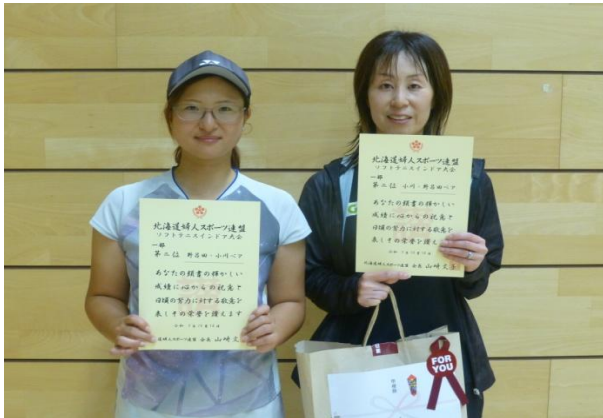 北海道婦人スポーツ連盟
ソフトテニスインドア大会
一部
第二位 野呂田・小川ペア
あなたの頭書の輝かしい
成績に心からの祝意と
日頃の努力に対する敬意を
表しその栄誉を讃えます
北海道婦人スポーツ連盟 会長 山﨑文
北海道婦人スポーツ連盟
ソフトテニスインドア大会
一部
第二位 小川・野呂田ペア
あなたの頭書の輝かしい
成績に心からの祝意と
日頃の努力に対する敬意を
表しその栄誉を讃えます
北海道婦人スポーツ連盟 会長 山﨑文
FOR
YOU